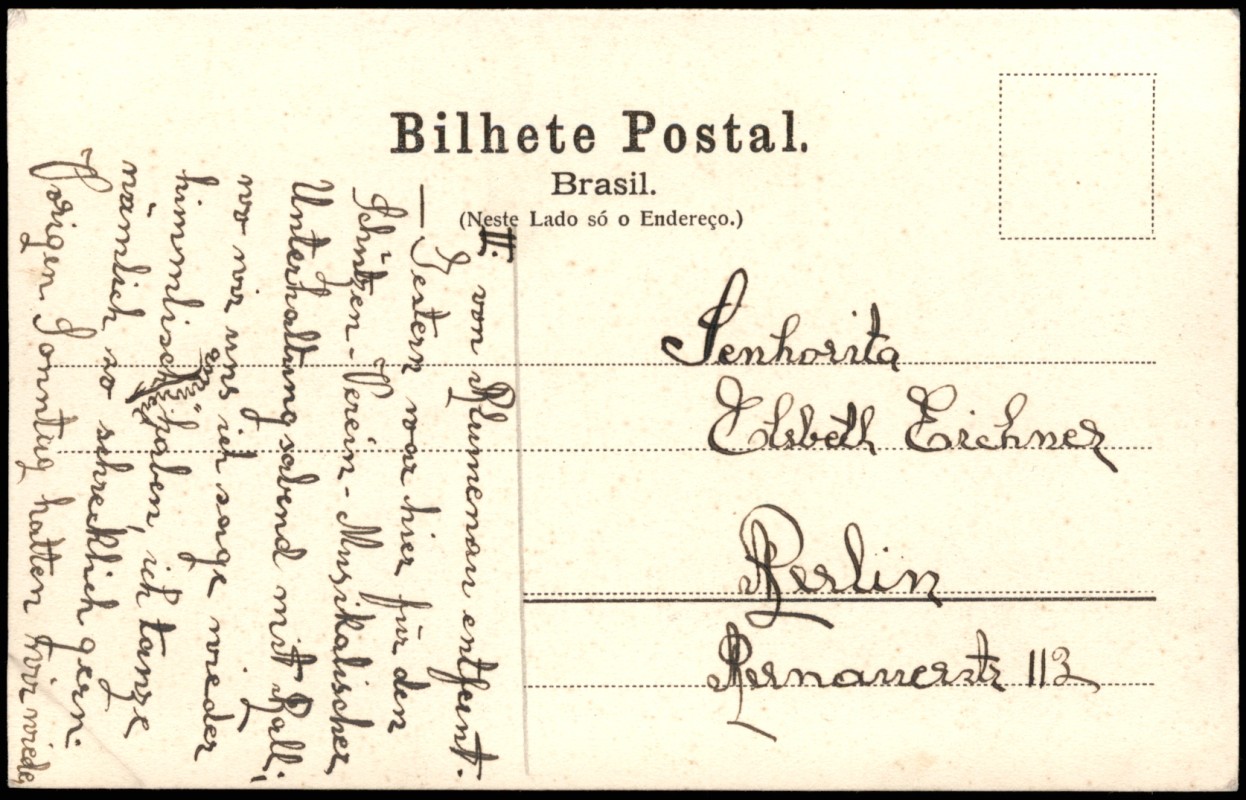 Bilhete Postal.
Brasil.
(Neste Lado só o Endereço.)
II: von Blumenau entfernt.
— Gestern war hier für den
Schützen-Verein-Musikalischer
Unterhaltungsabend mit Ball;
wo wir uns ich sage wieder
himmlisch haben, ich tanze
nämlich so schrecklich gern.
Vorigen Sonntag hatten wir wieder
Senhorita
Elsbeth Eichner
Berlin
Bernauerstr 112